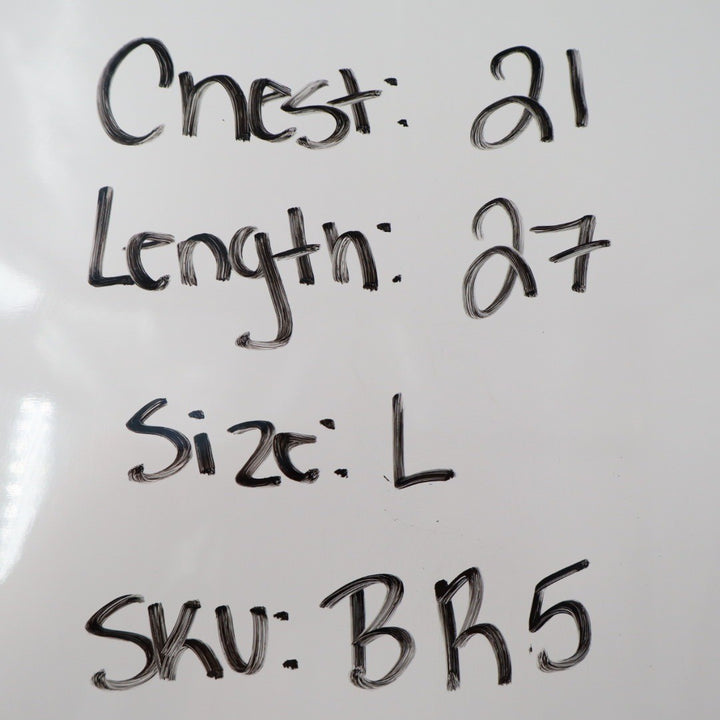 Chest: 21
Length: 27
Size: L
SKU: BR5